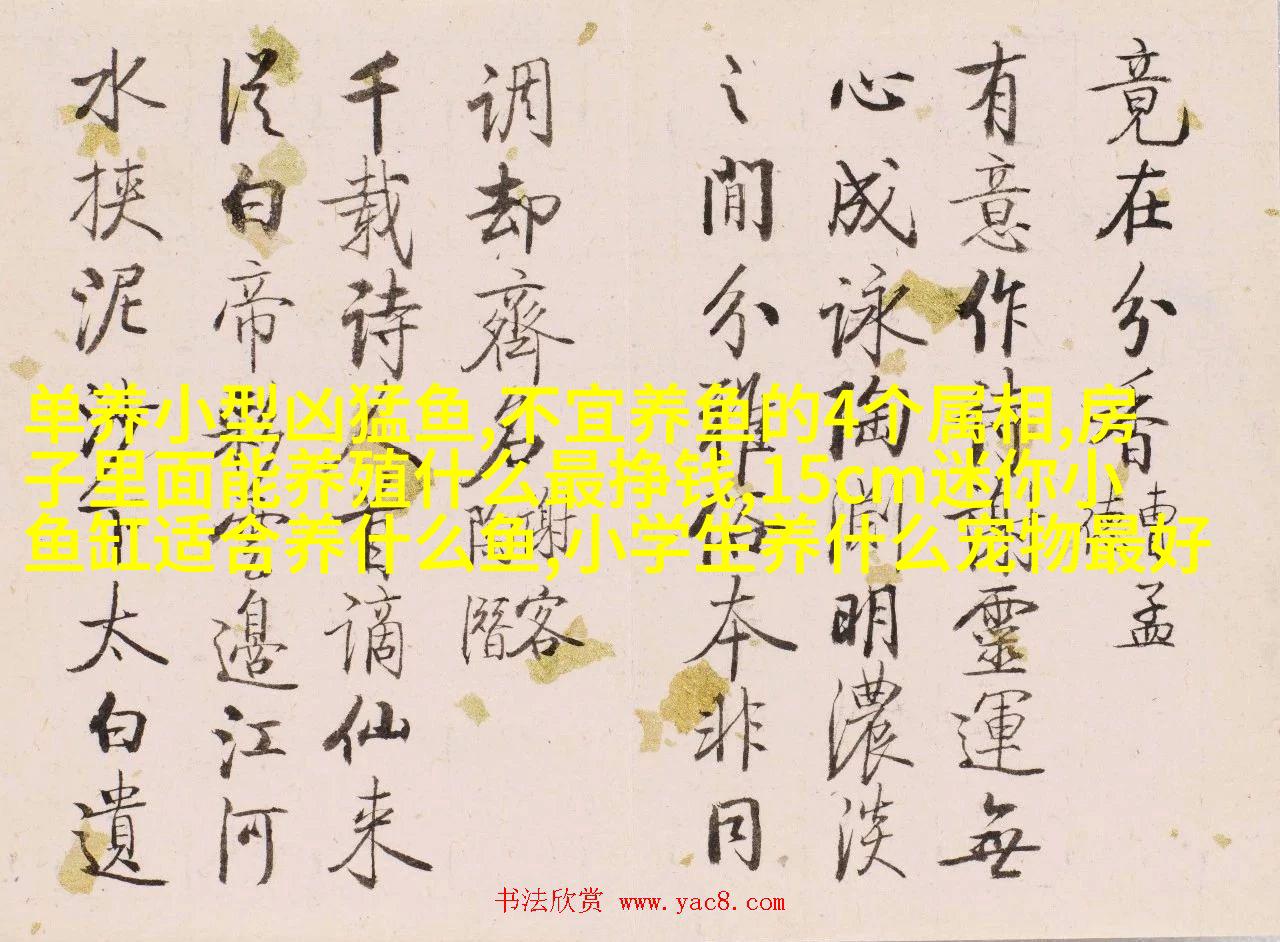 竟在分香
孟
有意作詩謝靈運無
心成詠陶淵明濃淡
之間分雅俗本非同
调却齊名謝客
陶潛
千载诗人首谪仙来
從白帝彩雲邊江河
水挾泥沙下太白遺
单养小型凶猛鱼,不宜养鱼的4个属相,房
子里面能养殖什么最挣钱,15cm迷你小
鱼缸适合养什么鱼,小学生养什么宠物最好
书法欣赏 www.yac8.com